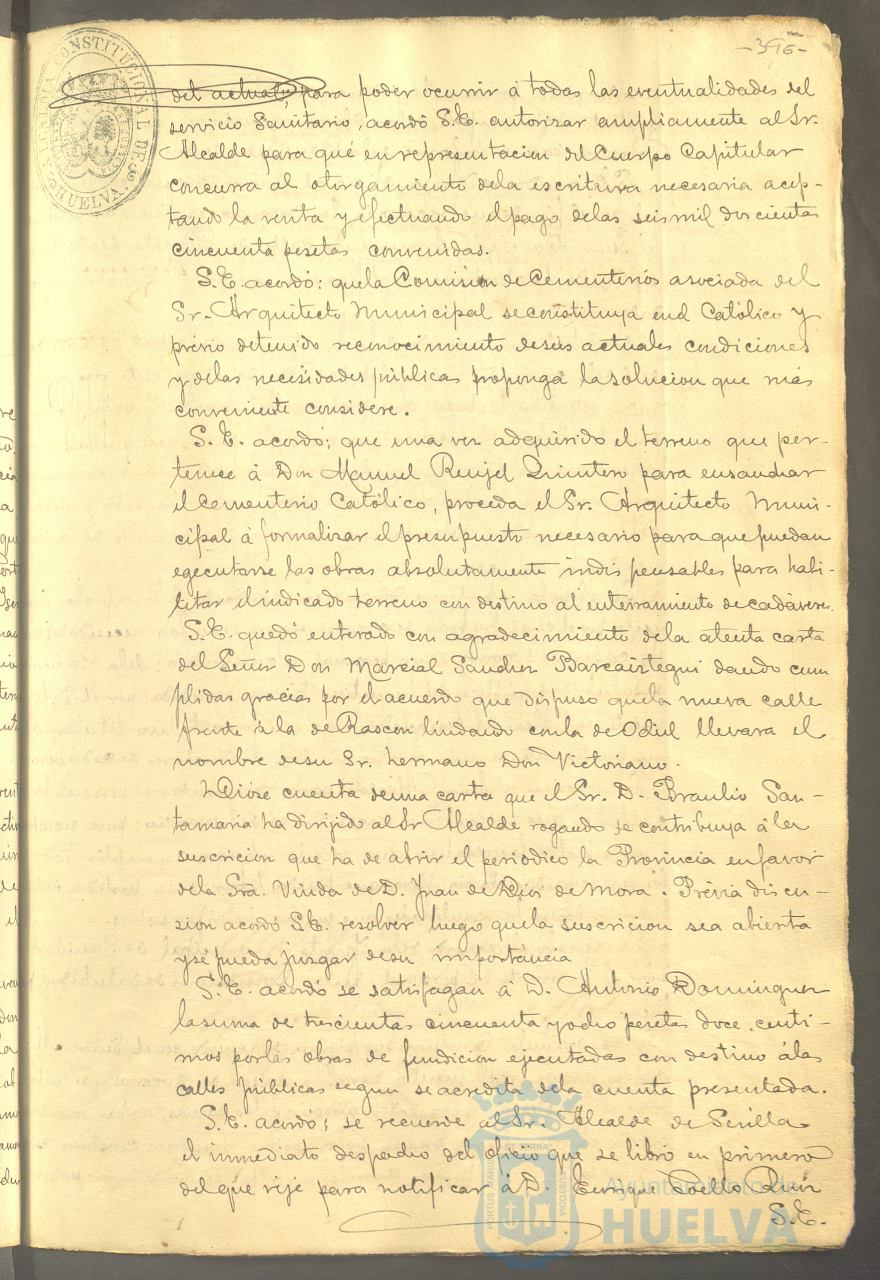 -396-
ALCALDIA CONSTITUCIONAL DE HUELVA.
del actual, para poder ocurrir á todas las eventualidades del
servicio Sanitario, acordó S.E. autorizar ampliamente al Sr.
Alcalde para qué en representacion del Cuerpo Capitular
concurra al otorgamiento dela escritura necesaria acep-
tando la venta y efectuando el pago delas seis mil doscientas
cincuenta pesetas convenidas.
S.E. acordó: quela Comisión de Cementerios asociada del
Sr. Arquitecto Municipal se constituya en el Católico y
prévio detenido reconocimiento desus actuales condiciones
y delas necesidades públicas proponga la solucion que más
conveniente considere.
S.E. acordó; que una vez adquirido el terreno que per-
tenece á Don Manuel Quintero para ensanchar
el Cementerio Católico, proceda el Sr. Arquitecto Muni-
cipal á formalizar el presupuesto necesario para que puedan
egecutarse las obras absolutamente indispensables para habi-
litar el indicado terreno con destino al enterramiento de cadáveres.
S.E. quedó enterado con agradecimiento dela atenta carta
del Señor Don Marcial Sanchez Barcaiztegui dando cum
plidas gracias por el acuerdo que dispuso quela nueva calle
frente á la de Rascon lindando conla de Odiel llevara el
nombre desu Sr. hermano Don Victoriano.
Dióse cuenta deuna carta que el Sr. D. Braulio San-
tamaria ha dirijido al Sr Alcalde rogando se contribuya á la
suscricion que ha de abrir el periódico la Provincia en favor
dela Sra. Viuda de D. Juan de Dios de Mora. Prévia discu-
sion acordó S.E. resolver luego quela suscricion sea abierta
y se pueda juzgar desu importancia
S.E. acordó se satisfagan á D. Antonio Dominguez
la suma de trescientas cincuenta y ocho pesetas doce centi-
mos porlas obras de fundicion ejecutadas con destino álas
calles públicas segun se acredita dela cuenta presentada.
S.E. acordó; se recuerde al Sr. Alcalde de Sevilla
el inmediato despacho del oficio que se libró en primero
del que rije para notificar á D. Enrique Coello Ruiz
S.E.
PORTUS MARIS ET TERRAE CUSTODIA
Ayuntamiento de
HUELVA